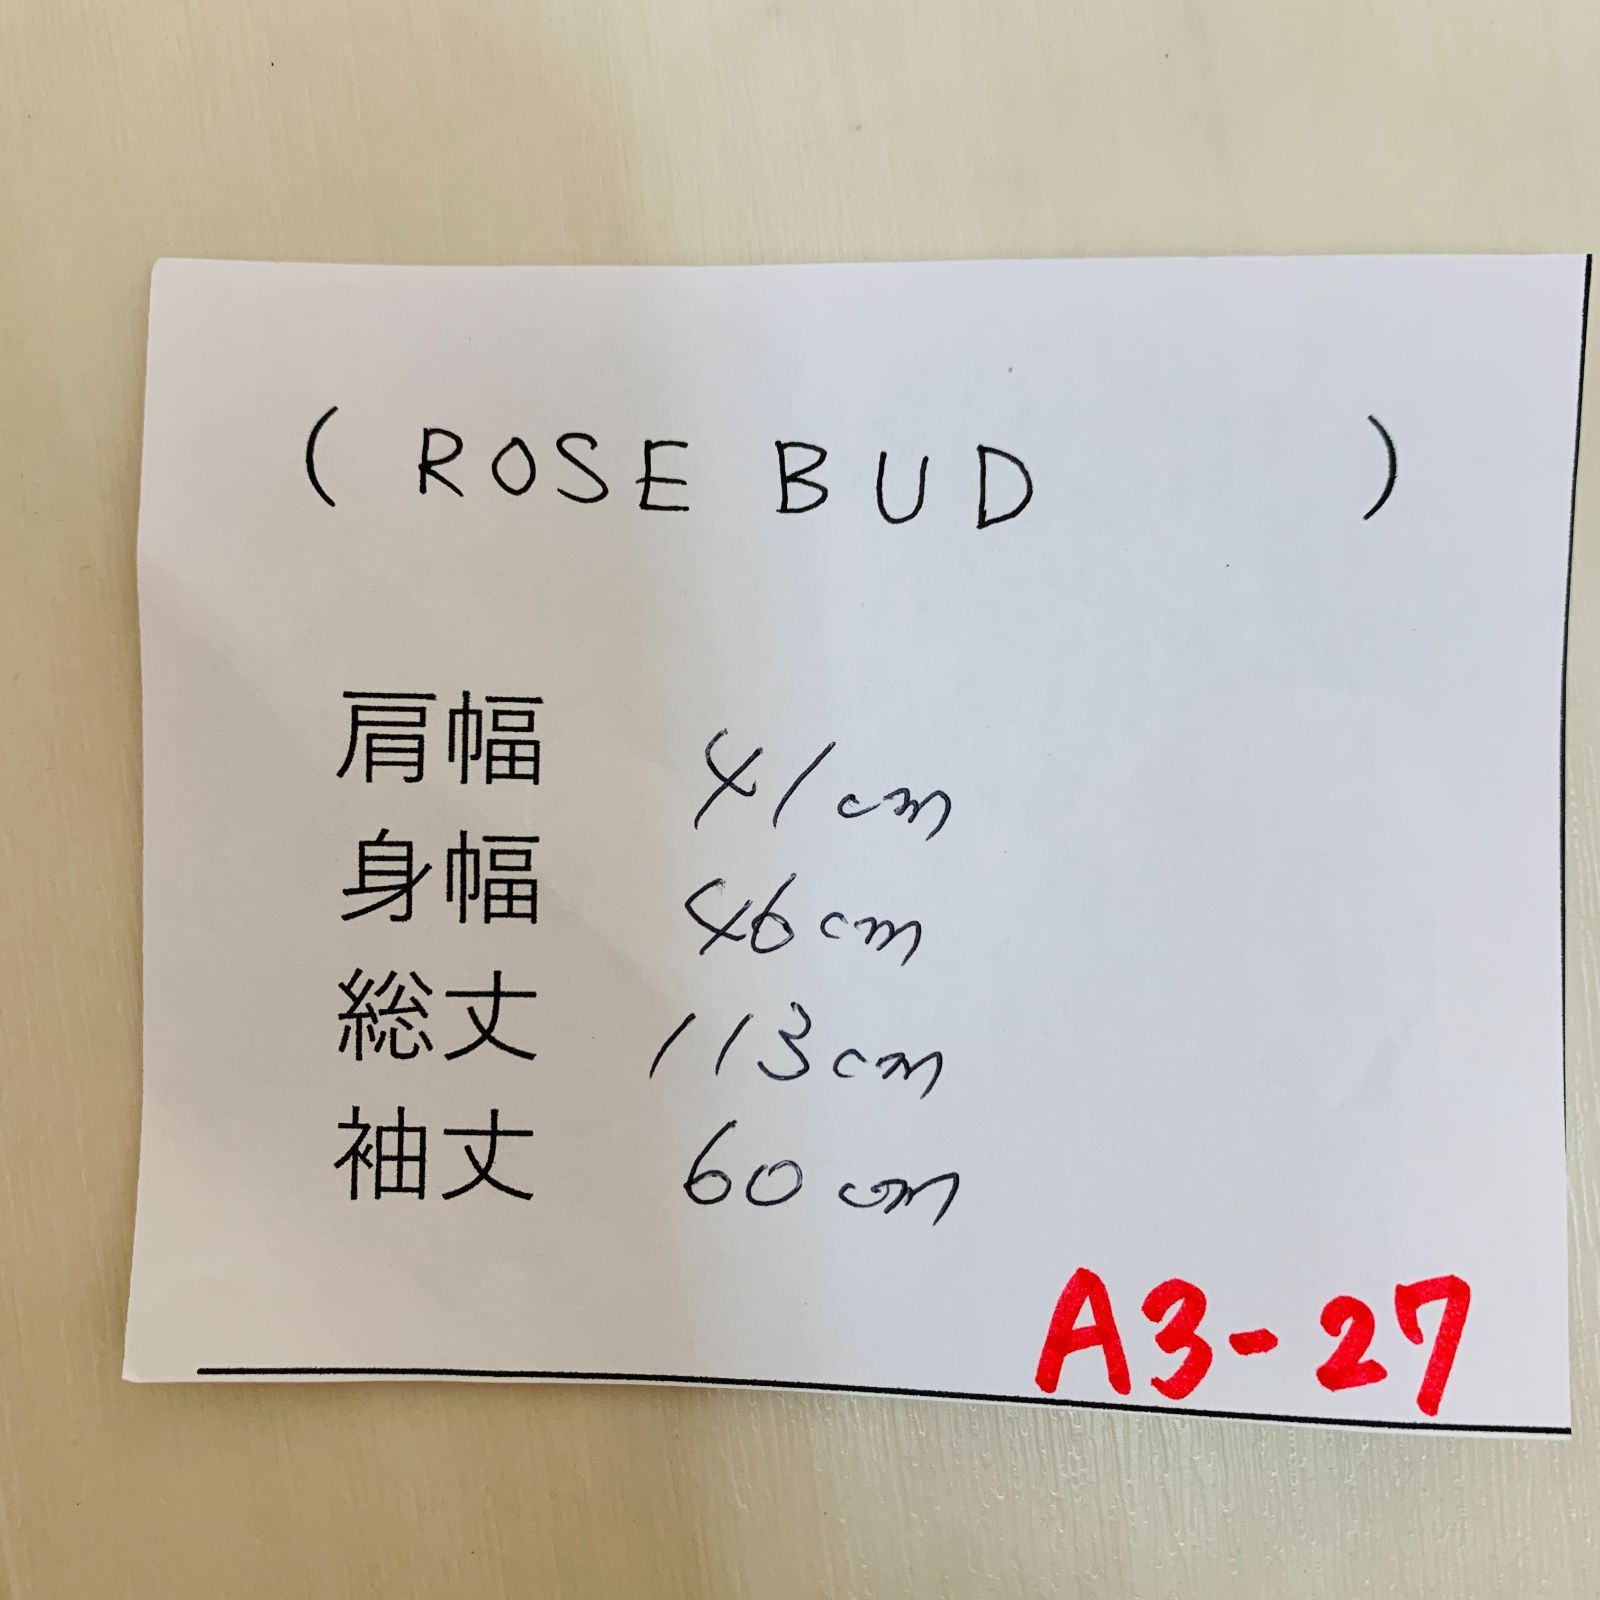 ( ROSE BUD )
肩幅 41cm
身幅 46cm
総丈 113cm
袖丈 60cm
A3-27